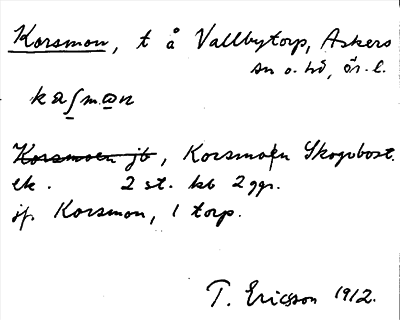 Korsmon, t å Vallbytorp, Askers
sn o. hd, ör. l.
Korsmoen jb, Korsmoen Skogsbost.
ek. 2 st. kb 2 ggr.
jf. Korsmon, 1 torp.
T. Ericsson 1912.